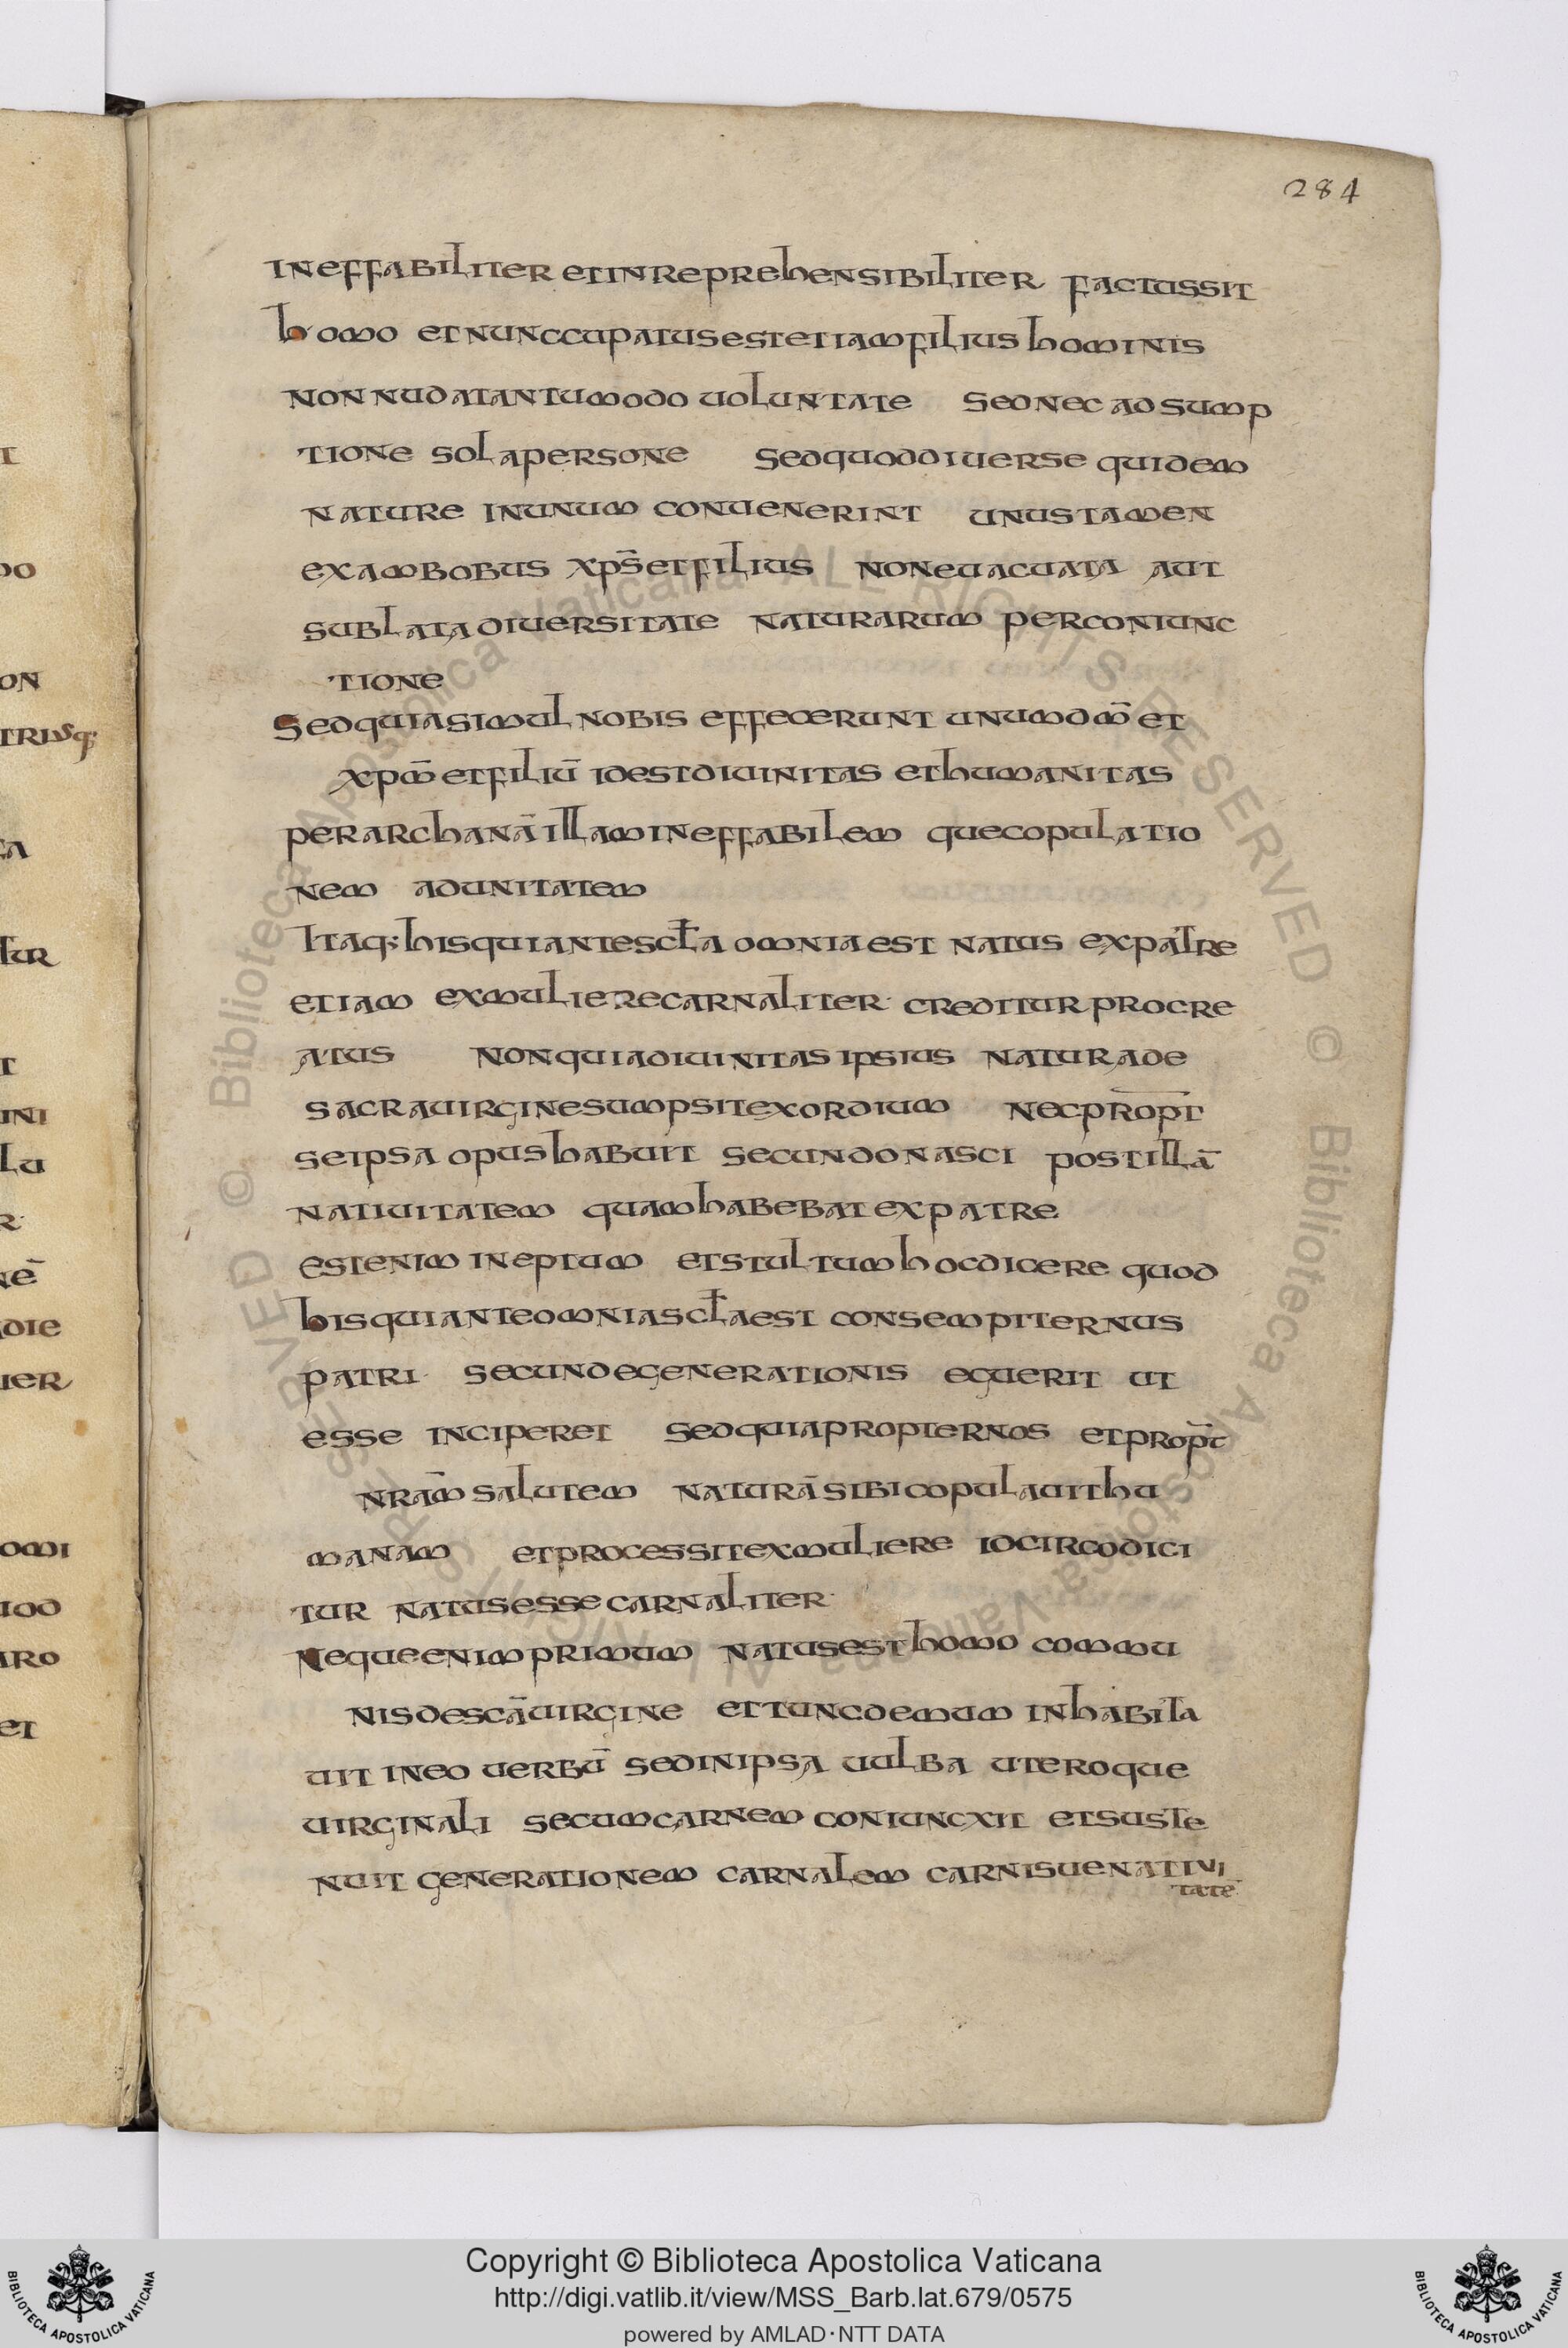 284
ineffabiliter et inreprehensibiliter factus sit
homo et nunccupatus est etiam filius hominis
non nuda tantummodo uoluntate sed nec adsump
tione sola persone sed quod diuerse quidem
nature in unum conuenerint unus tamen
ex ambobus xp̄s et filius non euacuata aut
sublata diuersitate naturarum per coniunc
tione
Sed quia simul nobis effecerunt unum dm̄ et
xpm̄ et filiū id est diuinitas et humanitas
per archanā illam ineffabilem que copulatio
nem ad unitatem
Itaq; his qui ante scl̄a omnia est natus ex patre
etiam ex muliere carnaliter creditur procre
atus non quia diuinitas ipsius natura de
sacra uirgine sumpsit exordium nec prop̄t
se ipsa opus habuit secundo nasci post illā
natiuitatem quam habebat ex patre
est enim ineptum et stultum hoc dicere quod
his qui ante omnia scl̄a est consempiternus
patri secunde generationis eguerit ut
esse inciperet sed quia propter nos et prop̄t
nrām salutem naturā sibi copulauit hu
manam et processit ex muliere idcirco dici
tur natus esse carnaliter
Neque enim primum natus est homo commu
nis de scā uirgine et tunc demum inhabita
uit in eo uerbū sed in ipsa uulba uteroque
uirginali secum carnem coniuncxit et suste
nuit generationem carnalem carnis sue natiui
tatē
Copyright © Biblioteca Apostolica Vaticana
http://digi.vatlib.it/view/MSS_Barb.lat.679/0575
powered by AMLAD·NTT DATA